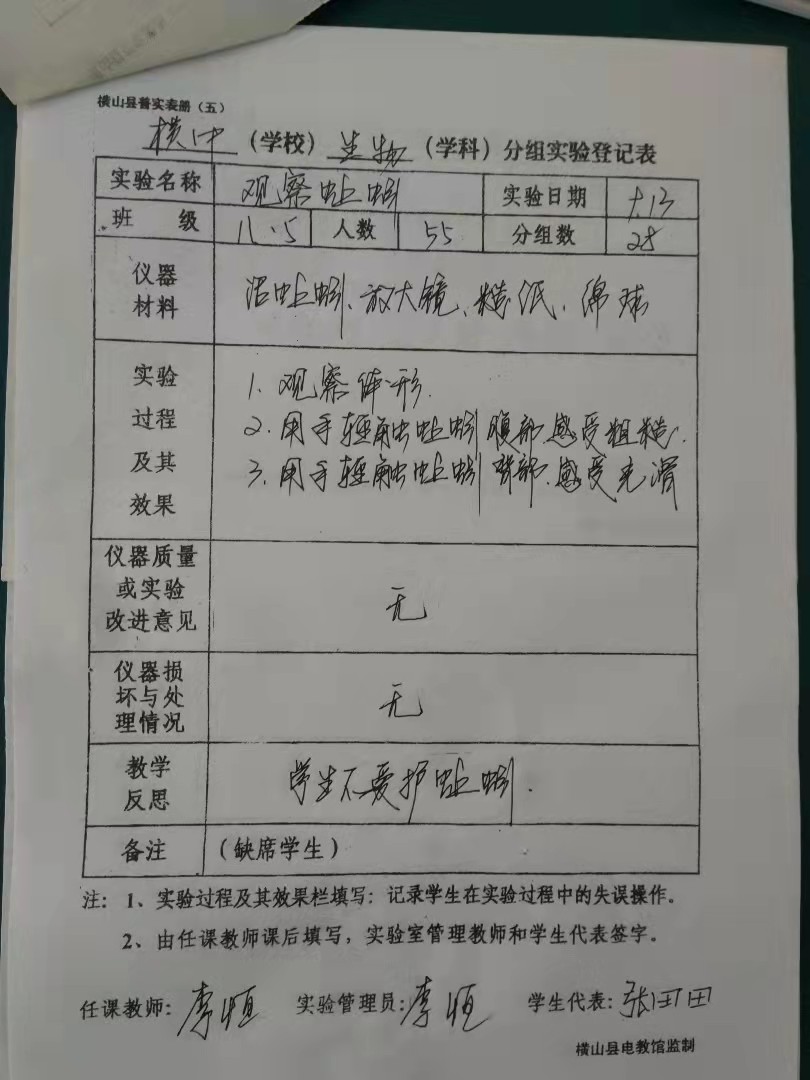 横山县普实表册（五）
横中（学校）生物（学科）分组实验登记表
实验名称 观察蚯蚓 实验日期 9.13
班 级 八.5 人数 55 分组数 28
仪器
材料
活蚯蚓、放大镜、糙纸、绵球
实验
过程
及其
效果
1. 观察体形.
2. 用手轻触蚯蚓腹部.感受粗糙.
3. 用手轻触蚯蚓背部.感受光滑
仪器质量
或实验
改进意见
无
仪器损
坏与处
理情况
无
教学
反思
学生不爱护蚯蚓.
备注 （缺席学生）
注： 1、实验过程及其效果栏填写：记录学生在实验过程中的失误操作。
2、由任课教师课后填写，实验室管理教师和学生代表签字。
任课教师：李恒 实验管理员：李恒 学生代表：张田田
横山县电教馆监制